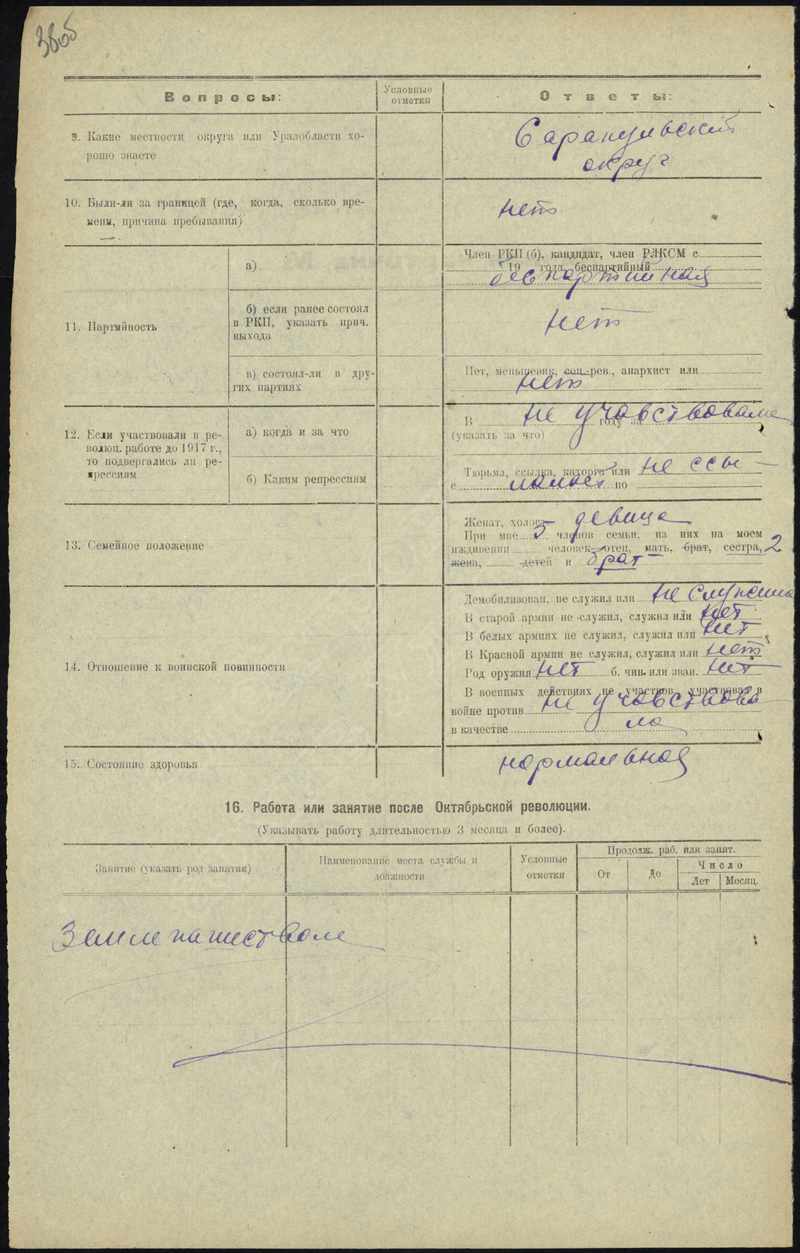 38об
Вопросы:
Условные отметки
Ответы:
9. Какие местности округа или Уралобласти хо-
рошо знаете
Сарапульский
округ
10. Были-ли за границей (где, когда, сколько вре-
мени, причина пребывания)
нет
11. Партийность
а)
Член РКП (б), кандидат, член РЛКСМ с
19 года, беспартийный
беспартийная
б) если ранее состоял
в РКП, указать прич.
выхода
нет
в) состоял-ли в дру-
гих партиях
Нет, меньшевик, соц.-рев., анархист или
нет
12. Если участвовали в ре-
волюц. работе до 1917 г.,
то подвергались ли ре-
прессиям
а) когда и за что
В году за
не учавствовала
(указать за что)
б) Каким репрессиям
Тюрьма, ссылка, каторга или не ссы-
с лалась по
13. Семейное положение
Женат, холост девица
При мне 5 членов семьи, из них на моем
иждивении человек-отец, мать, брат, сестра, 2
жена, детей и брат
14. Отношение к воинской повинности
Демобилизован, не служил или не служила
В старой армии не служил, служил или нет
В белых армиях не служил, служил или нет
В Красной армии не служил, служил или нет
Род оружия нет б. чин или зван. нет
В военных действиях не участвов., участвовал в
войне против не учавствова
в качестве ла
15. Состояние здоровья
нормальная
16. Работа или занятие после Октябрьской революции.
(Указывать работу длительностью 3 месяца и более).
Занятие (указать род занятия)
Наименование места службы и
должности
Условные
отметки
Продолж. раб. или занят.
От
До
Число
Лет
Месяц.
Земле пашеством